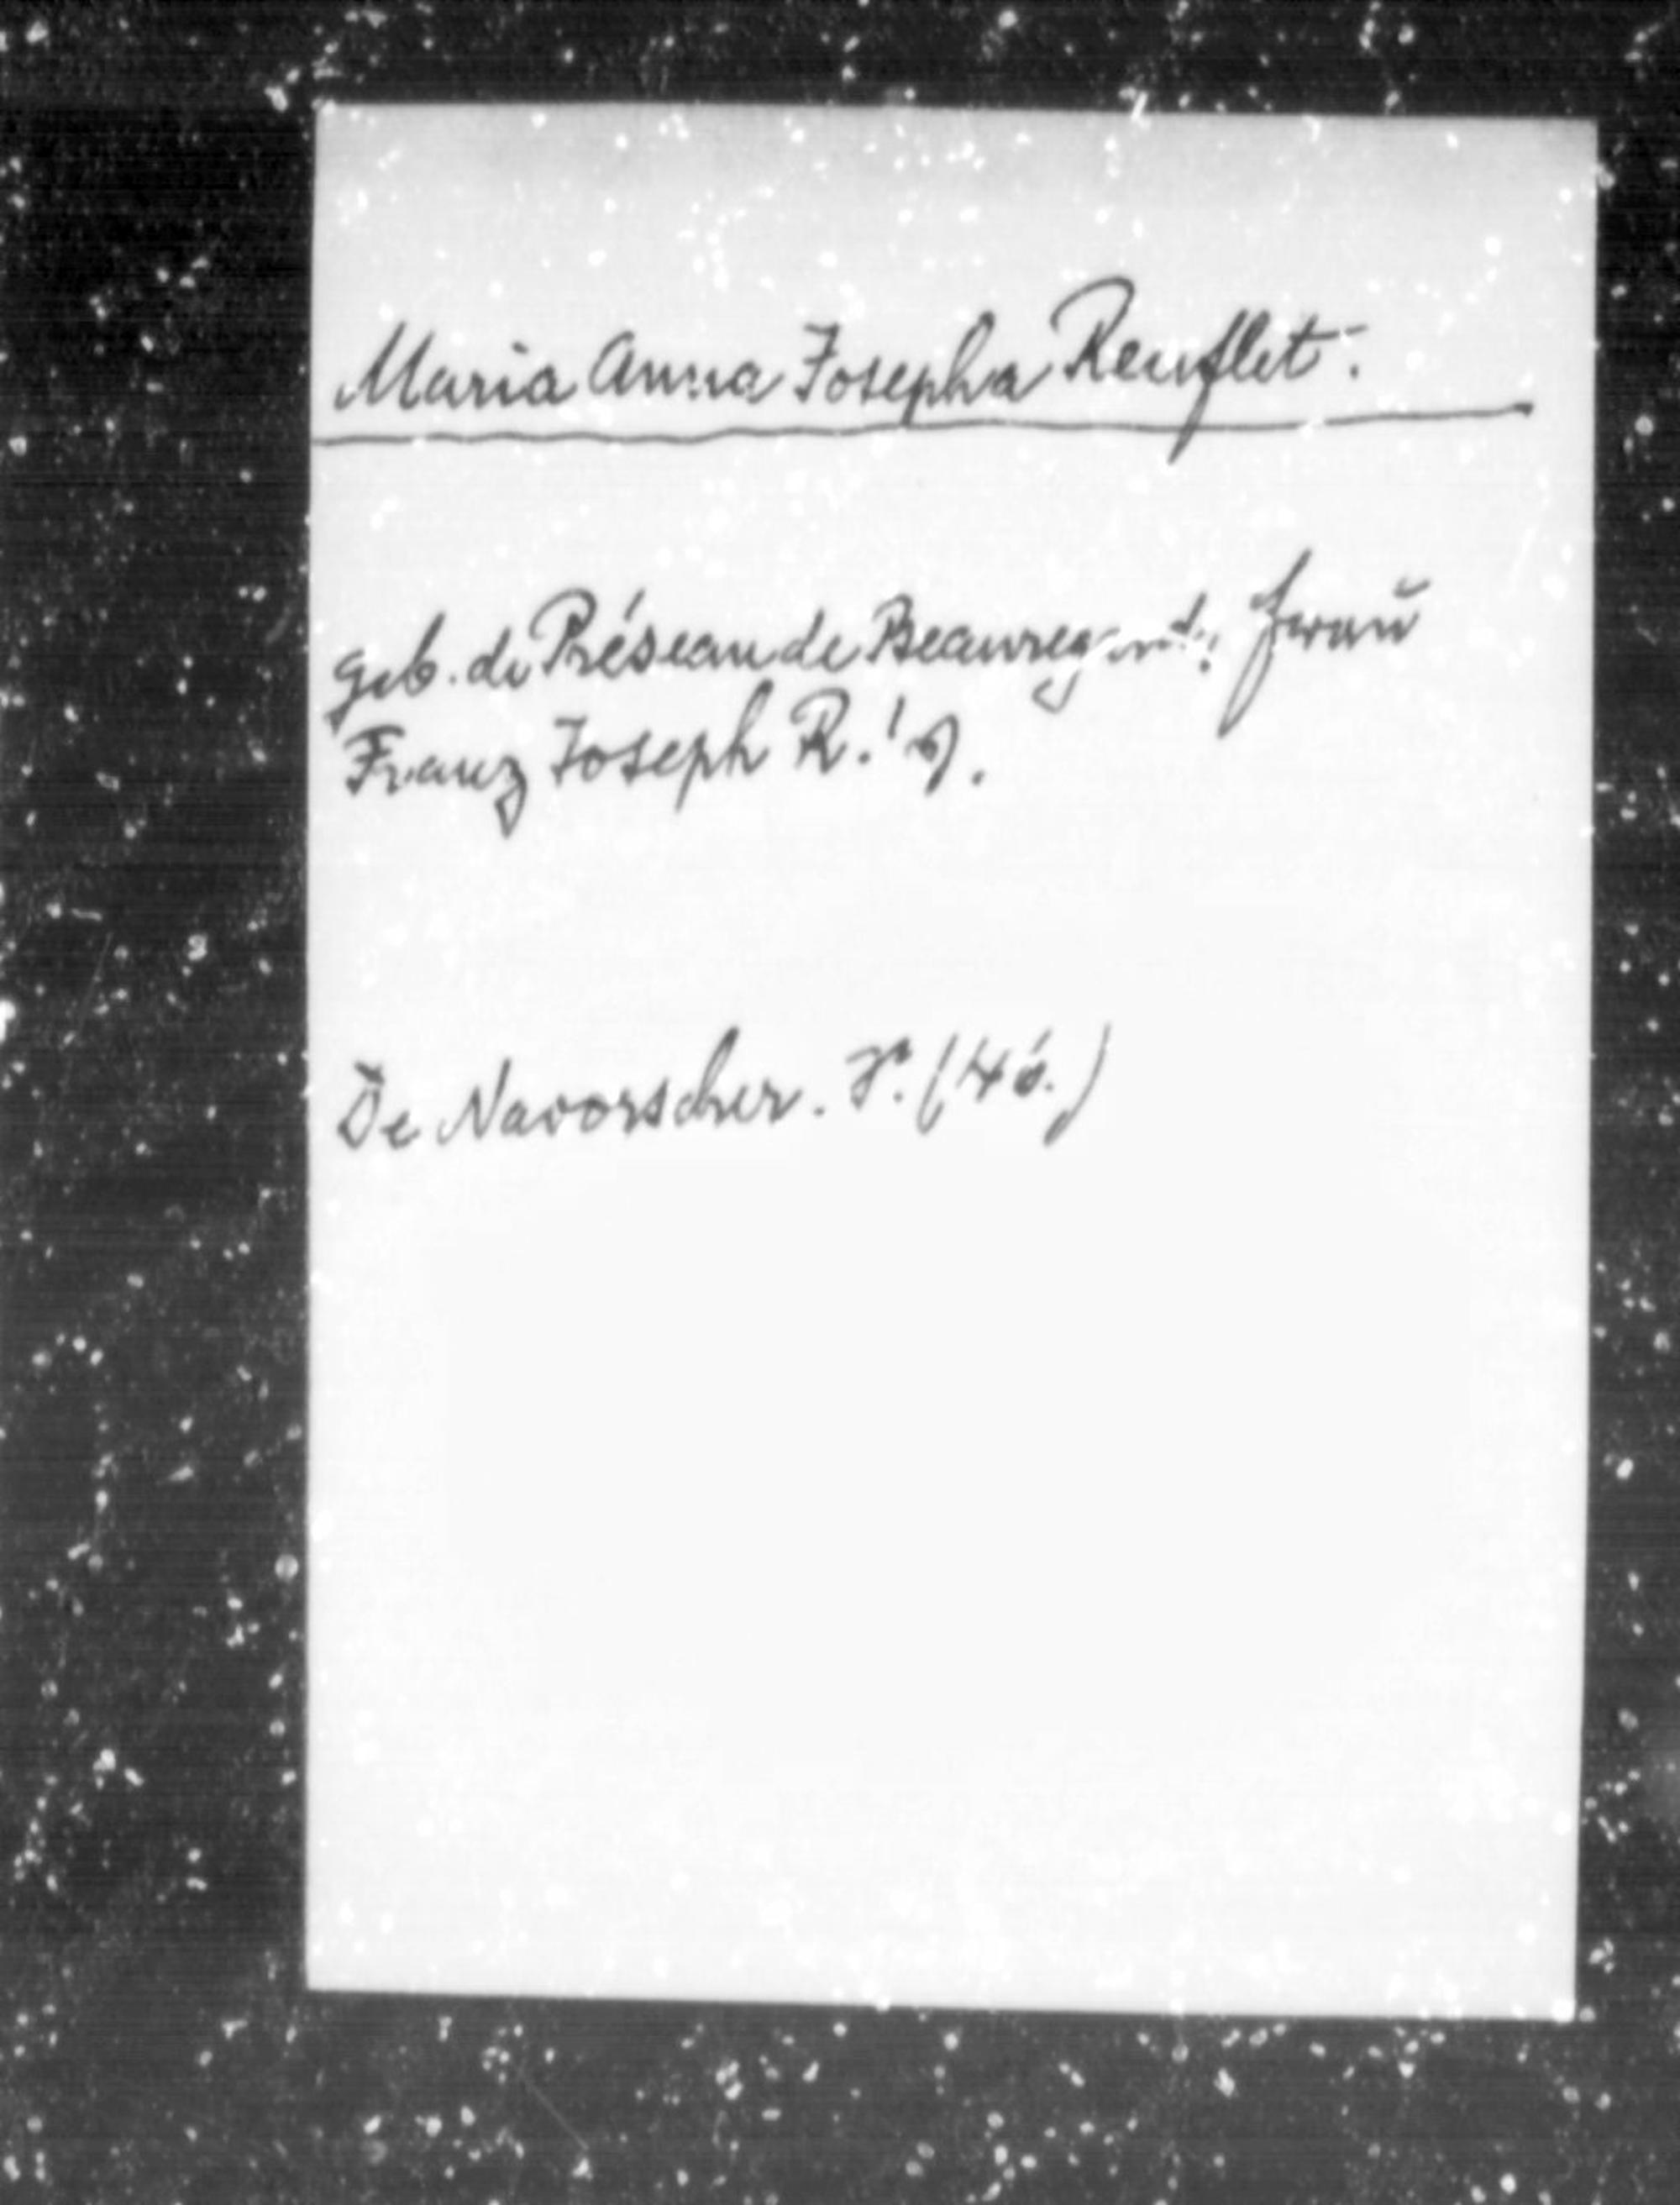 Maria Anna Josepha Renflet.
geb. de Préseau de Beauregard, Frau
Franz Joseph R.'s.
De Navorscher. J. (46.)